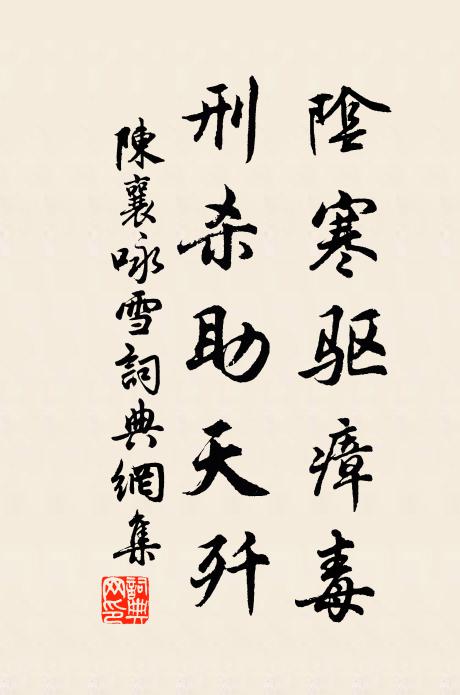 陰寒驱瘴毒
刑杀助天歼
陳襄咏雪詞典網集
詞典
网印